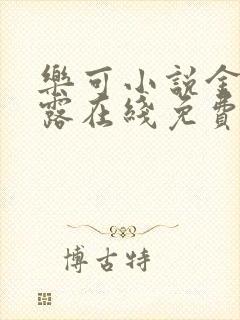 樂可小説金
露在綫免費
博古特